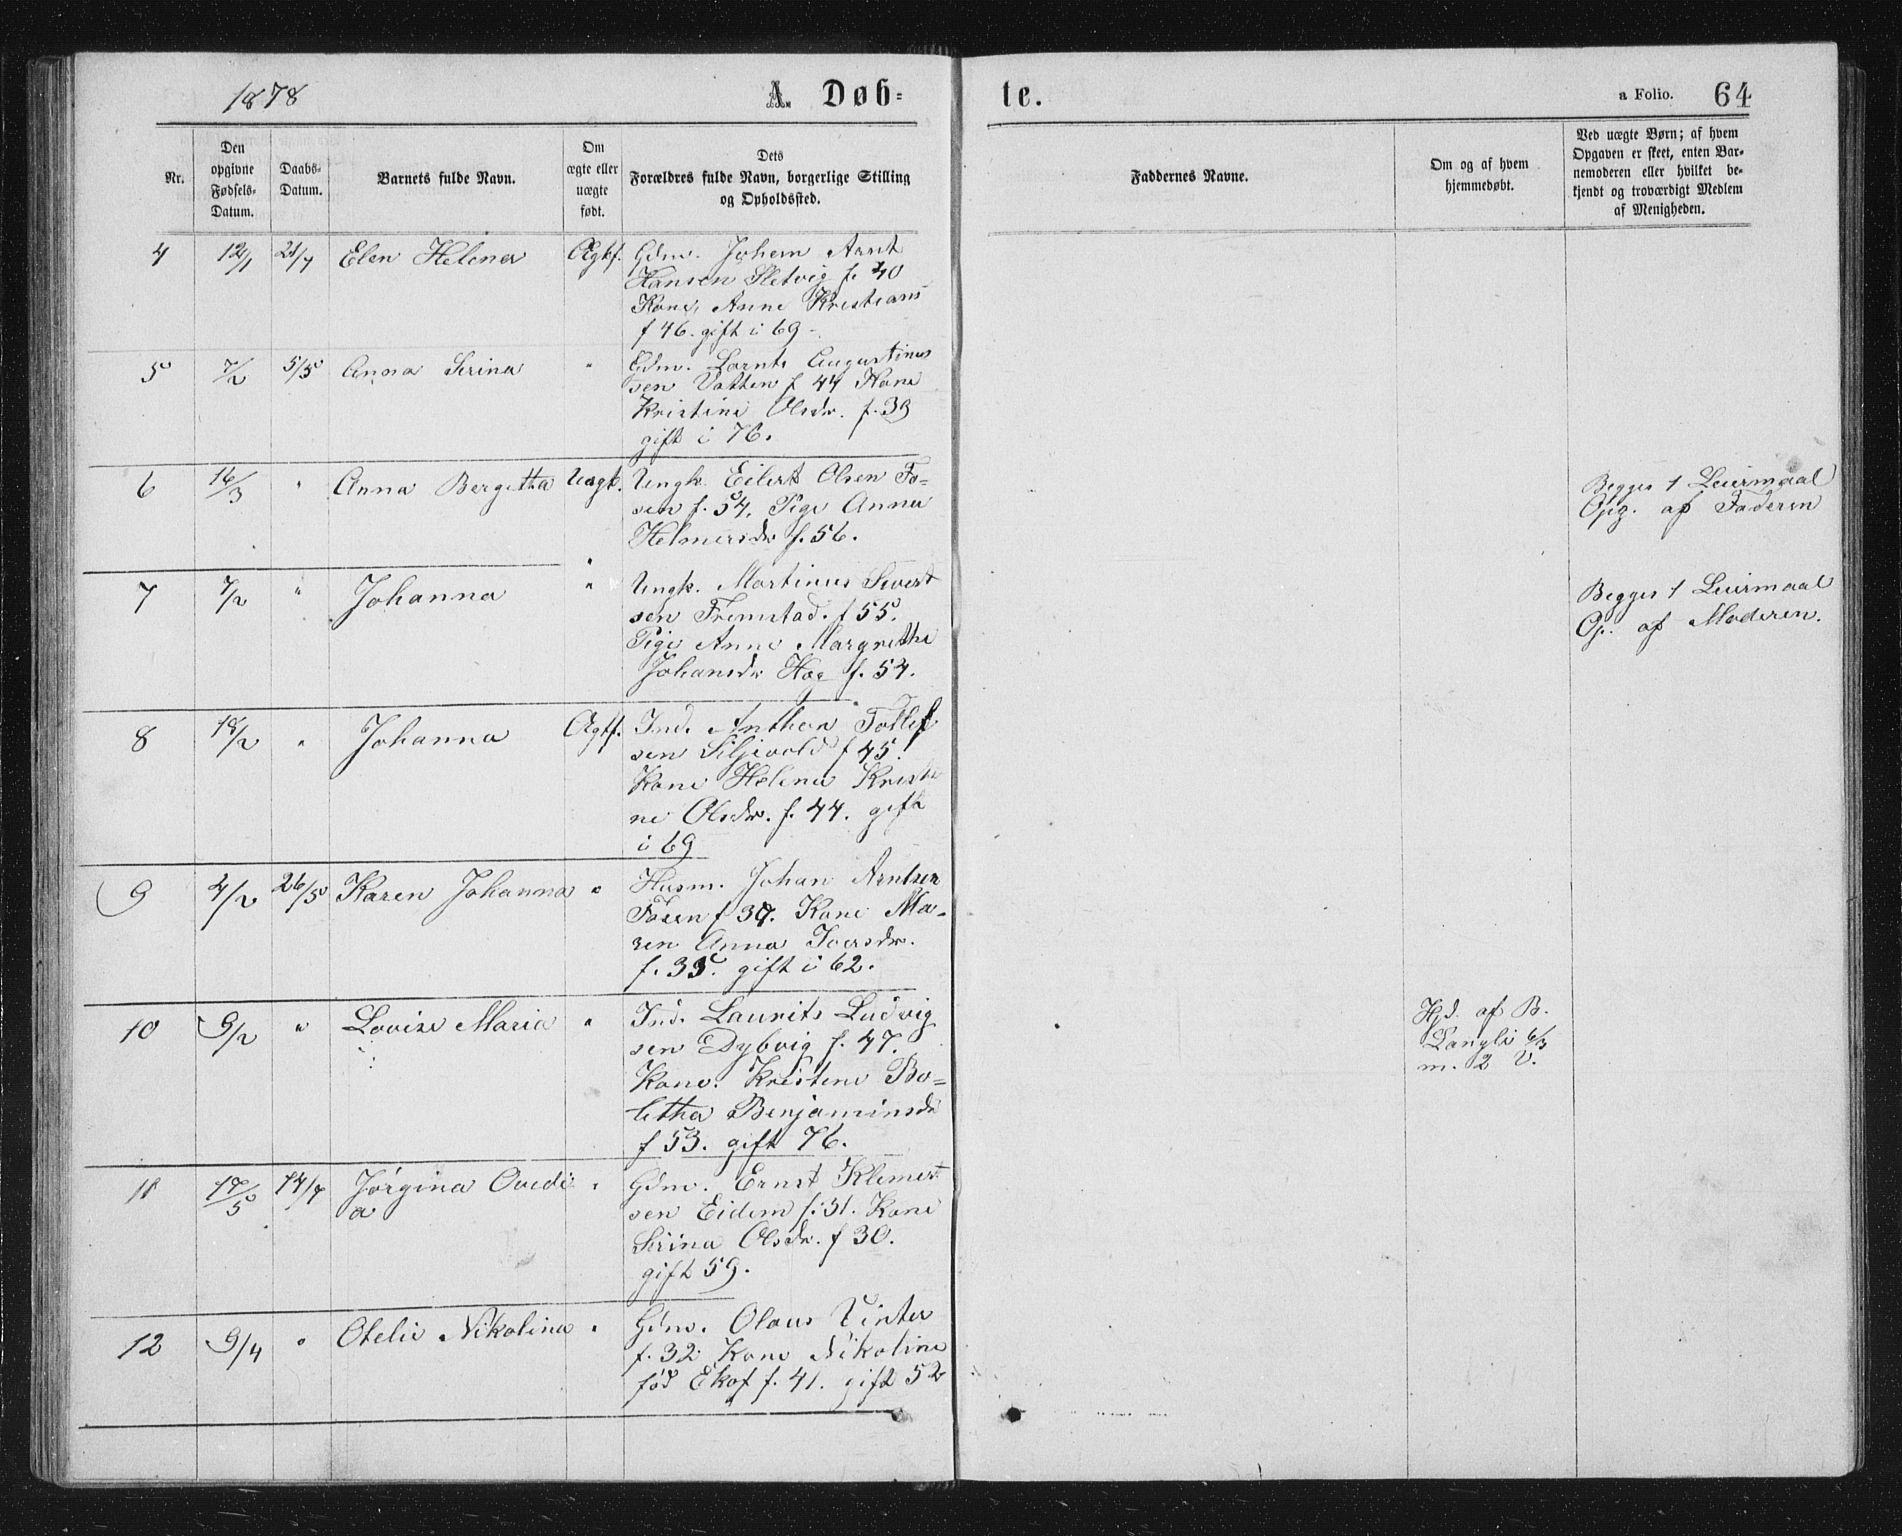 1878
A. Døb-
te.
a Folio. 64
Nr.
Den
opgivne
Fødsels-
Datum.
Daabs-
Datum.
Barnets fulde Navn.
Om
ægte eller
uægte
født.
Dets
Forældres fulde Navn, borgerlige Stilling
og Opholdssted.
Faddernes Navne.
Om og af hvem
hjemmedøbt.
Ved uægte Børn; af hvem
Opgaven er skeet, enten Bar-
nemoderen eller hvilket be-
kjendt og troværdigt Medlem
af Menigheden.
4 12/1 21/4 Elen Helena Ægtf. Gdm. Johan Arnt
Hansen Sletvig f. 40
Kone, Anne Kristians
f 46. gift i 69.
5 7/2 5/5 Anna Serina " Gdm. Lornts Augustinus
sen Vatten f 44 Kone
Kristine Olsdr. f. 39
gift i 76.
6 16/3 " Anna Bergitta Uægt. Ungk. Eilert Olsen Fo-
sen f. 54. Pige Anna
Helmersdr f. 56.
Begges 1 Leiermaal
Opg. af Faderen
7 7/2 " Johanna " Ungk. Martinus Sivert
sen Fremstad. f 55.
Pige Anne Margrethe
Johansdr Hag f. 54.
Begges 1 Leiermaal
Op. af Moderen.
8 18/2 " Johanna Ægtf. Ind. Anthon Tollef
sen Siljevold f 45.
Kone Helena Kristi
ne Olsdr. f. 44. gift
i 69
9 4/2 26/5 Karen Johanna " Husm. Johan Arntsen
Fosen f 37. Kone Ma-
ren Anna Iversdr.
f. 35. gift i 62.
10 9/2 " Lovise Maria " Ind. Laurits Ludvig
sen Dybvig f. 47.
Kone. Kristine Bo-
letha Benjaminsdr
f 53. gift 76.
Hjd. af B.
Langli 6/3
m. 2 V.
11 17/5 14/7 Jørgina Ovedi " Gdm. Ernst Klemert
a
sen Eidem f. 31. Kone
Serina Olsdr. f 30.
gift 59.
12 9/4 " Otelie Nikolina " Gdm. Olaus Vinter
f. 32. Kone Nikoline
fød Ekof f. 41. gift 52